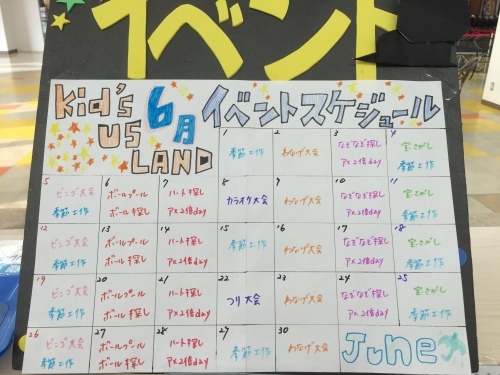 イベント
Kid's
US
LAND
6月
イベントスケジュール
1
季節工作
2
わなげ大会
3
なぞなぞ探し
2倍day
4
宝さがし
季節工作
5
ビンゴ大会
季節工作
6
ボールプール
ボール探し
7
ハート探し
2倍day
8
カラオケ大会
9
わなげ大会
10
なぞなぞ探し
2倍day
11
宝さがし
季節工作
12
ビンゴ大会
季節工作
13
ボールプール
ボール探し
14
ハート探し
2倍day
15
季節工作
16
わなげ大会
17
なぞなぞ探し
2倍day
18
宝さがし
季節工作
19
ビンゴ大会
季節工作
20
ボールプール
ボール探し
21
ハート探し
2倍day
22
つり大会
23
わなげ大会
24
なぞなぞ探し
2倍day
25
宝さがし
季節工作
26
ビンゴ大会
季節工作
27
ボールプール
ボール探し
28
ハート探し
2倍day
29
季節工作
30
わなげ大会
June